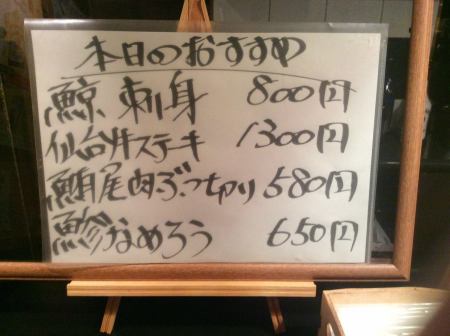 本日のおすすめ
鯨刺身 800円
仙台牛ステキ 1300円
鮪尾肉ぶつ切り 580円
鯵なめろう 650円